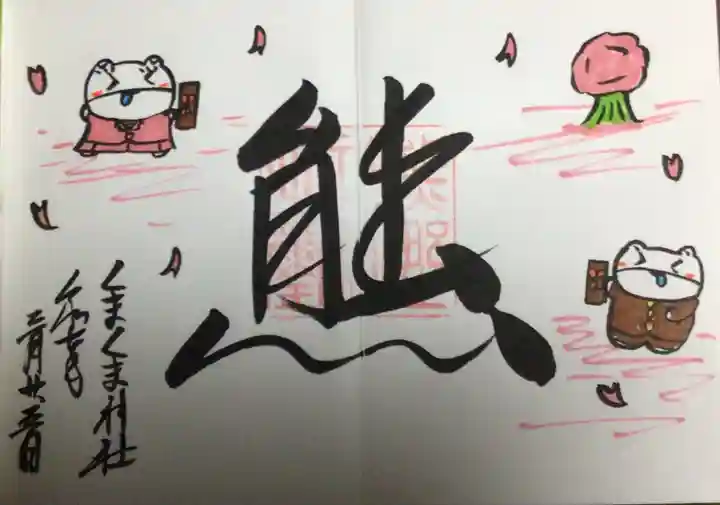 熊
くまくま神社
令和七年
三月廿三日